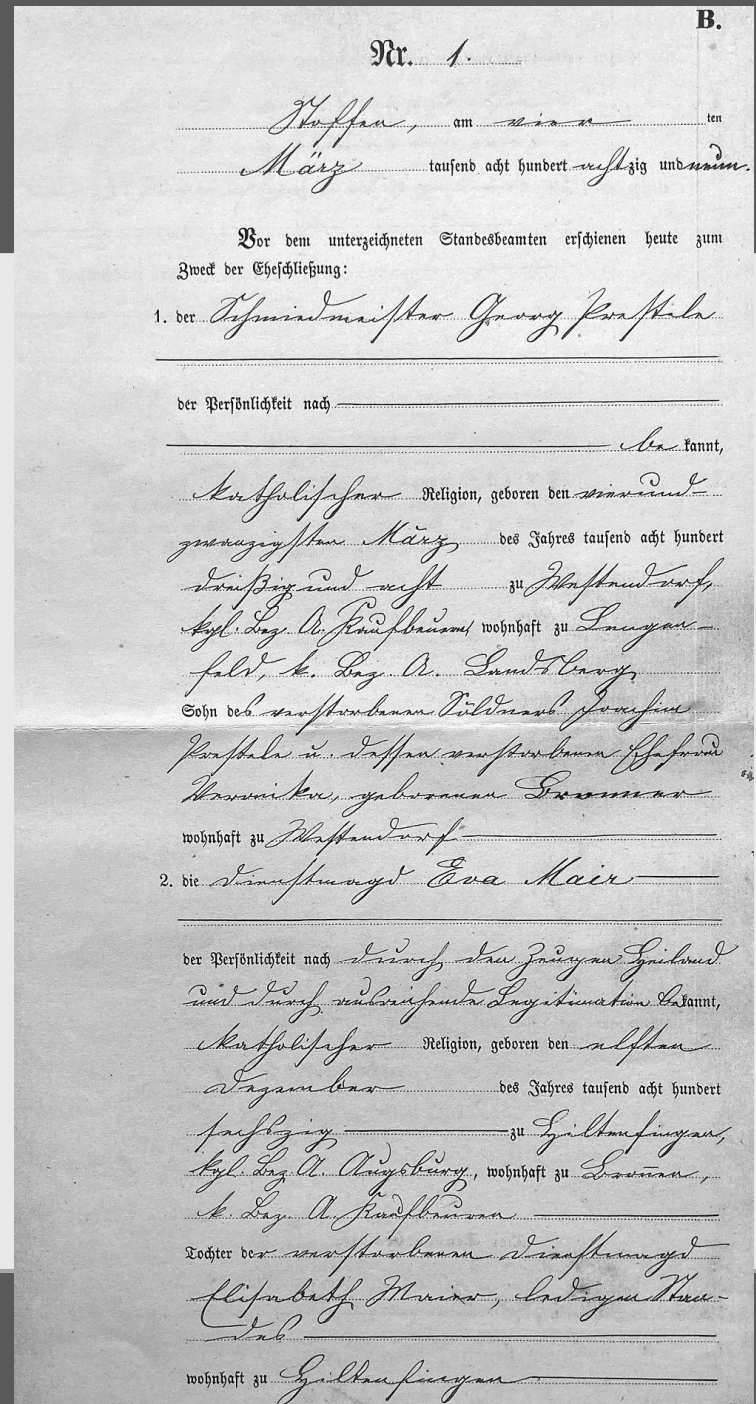 B.
Nr. 1.
Stoffen, am vier ten
März tausend acht hundert achtzig und neun.
Vor dem unterzeichneten Standesbeamten erschienen heute zum
Zweck der Eheschließung:
1. der Schmiedmeister Georg Prestele
der Persönlichkeit nach
be kannt,
katholischer Religion, geboren den vierund-
zwanzigsten März des Jahres tausend acht hundert
dreißig und acht zu Westendorf,
kgl. Bez. A. Kaufbeuren, wohnhaft zu Lengen-
feld, k. Bez. A. Landsberg
Sohn des verstorbenen Söldners Joachim
Prestele u. dessen verstorbenen Ehefrau
Veronika, geborenen Brenner
wohnhaft zu Westendorf
2. die Dienstmagd Eva Mair
der Persönlichkeit nach durch den Zeugen Heiland
und durch ausreichende Legitimation bekannt,
katholischer Religion, geboren den elften
Dezember des Jahres tausend acht hundert
sechszig zu Hiltenfingen,
kgl. Bez. A. Augsburg, wohnhaft zu Bronnen,
k. Bez. A. Kaufbeuren
Tochter der verstorbenen Dienstmagd
Elisabeth Maier, ledigen Stan-
des
wohnhaft zu Hiltenfingen